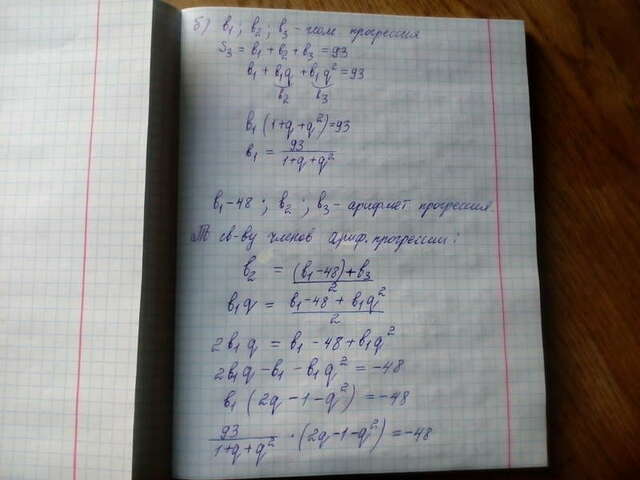 б) в₁; в₂; в₃ - геом прогрессия
S₃ = в₁ + в₂ + в₃ = 93
в₁ + в₁q + в₁q² = 93
в₂ в₃
в₁ (1+q+q²) = 93
в₁ = 93/(1+q+q²)
в₁-48; в₂; в₃ - арифмет прогрессия.
св-ву членов ариф. прогрессии:
в₂ = ((в₁-48)+в₃)/2
в₁q = (в₁-48+в₁q²)/2
2в₁q = в₁-48+в₁q²
2в₁q-в₁-в₁q² = -48
в₁(2q-1-q²) = -48
93/(1+q+q²) · (2q-1-q²) = -48